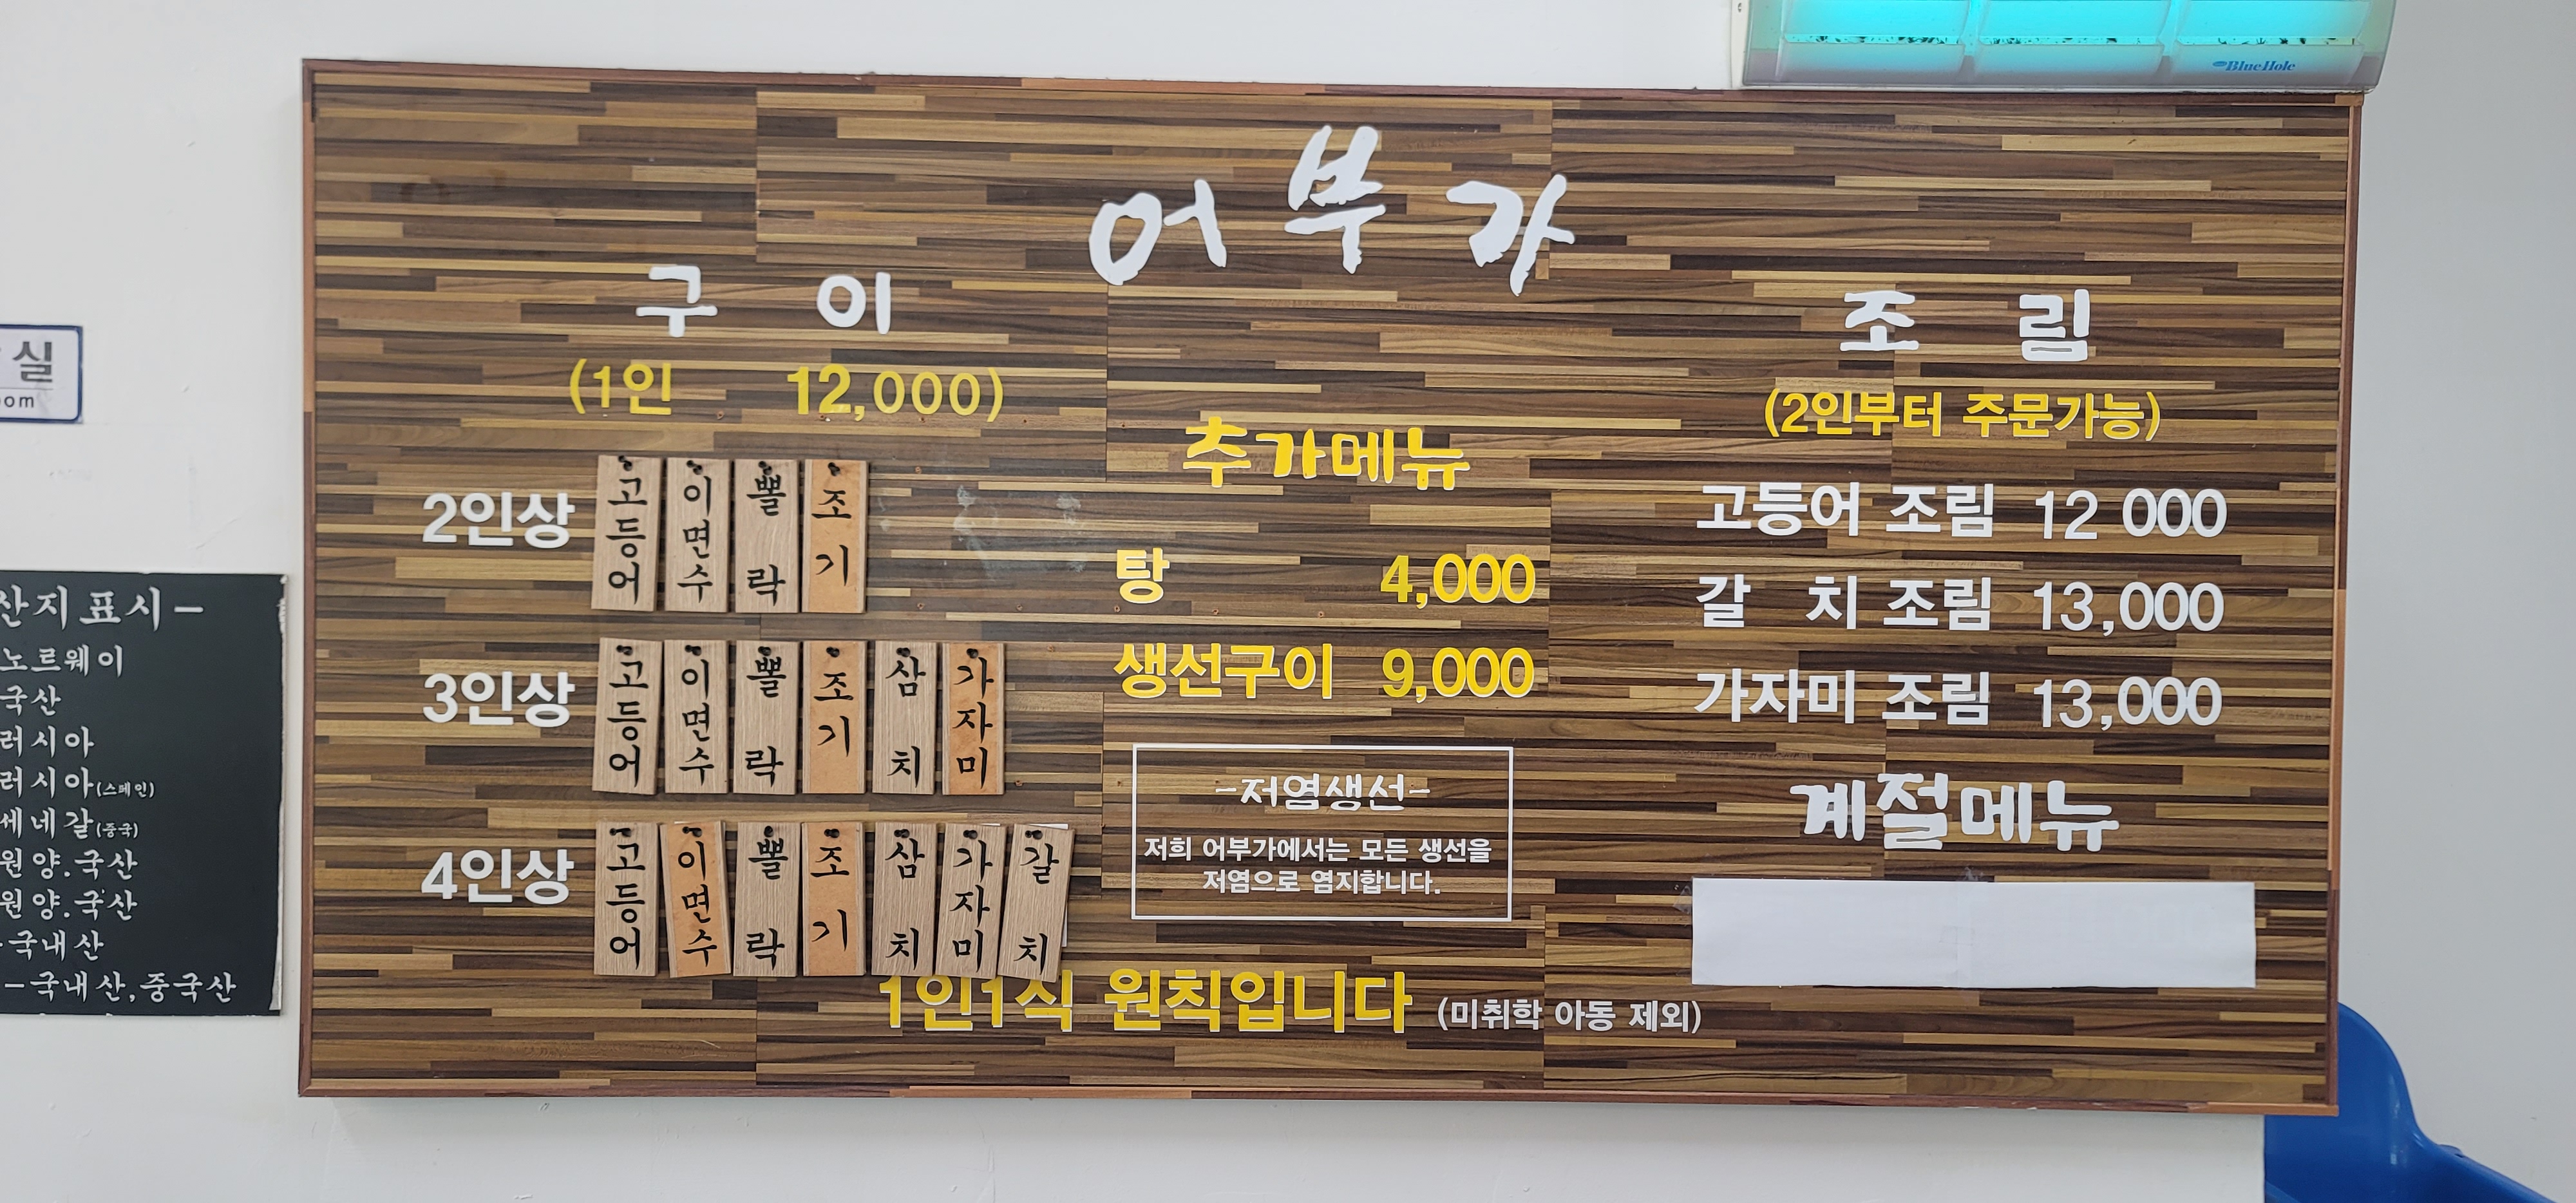 어부가
구 이
(1인 12,000)
2인상 고등어 이면수 뽈락 조기
3인상 고등어 이면수 뽈락 조기 삼치 가자미
4인상 고등어 이면수 뽈락 조기 삼치 가자미 갈치
추가메뉴
탕 4,000
생선구이 9,000
-저염생선-
저희 어부가에서는 모든 생선을
저염으로 염지합니다.
조 림
(2인부터 주문가능)
고등어 조림 12 000
갈 치 조림 13,000
가자미 조림 13,000
계절메뉴
1인1식 원칙입니다 (미취학 아동 제외)
BlueHole
실
oom
산지표시-
노르웨이
국산
러시아
러시아(스페인)
세네갈(중국)
원양.국산
원양.국산
-국내산
-국내산,중국산